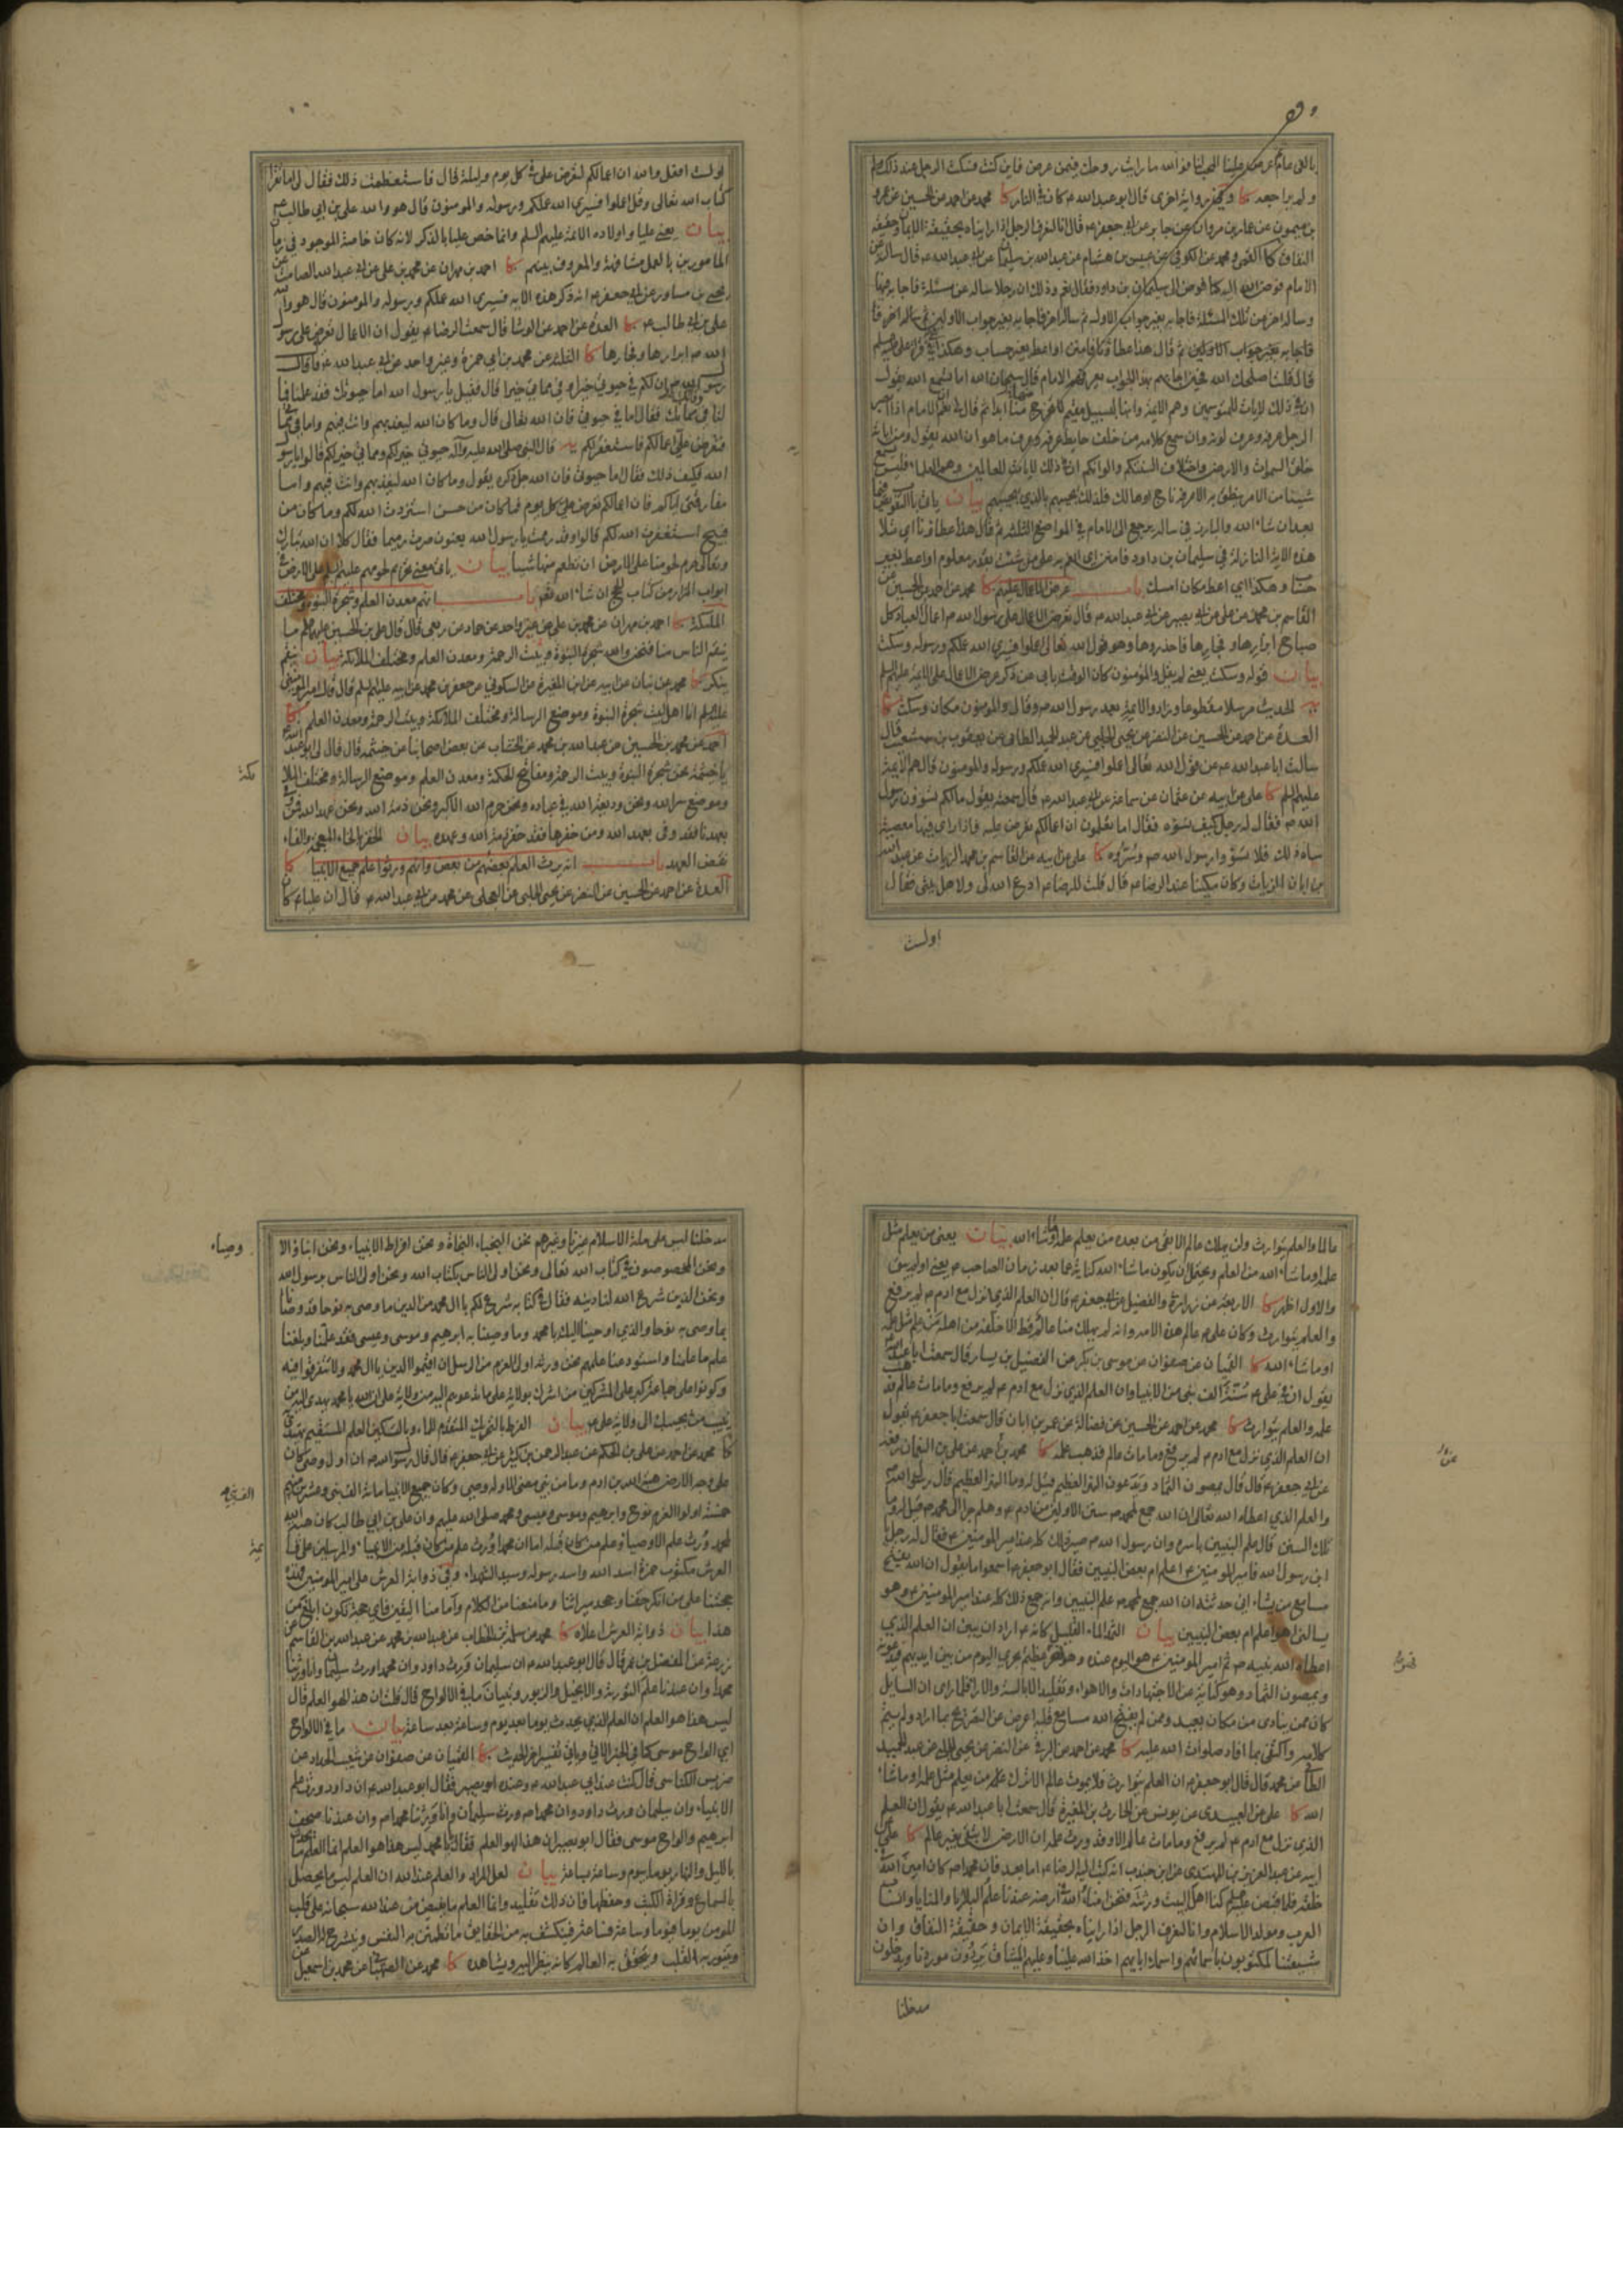 بالفى عام ثم عرض علينا المحب لنا فوالله ما رايت روحك فيمن عرض فاين كنت فسكت الرجل عند ذلك
ولم يراجعه كا وفي رواية اخرى قال ابو عبدالله ع كان في النار كا محمد عن احمد عن الحسين عن عمرو
بن ميمون عن عمار بن مروان عن جابر عن ابي جعفر ع قال انا لنعرف الرجل اذا رايناه بحقيقة الايمان وحقيقة
النفاق كا القمي ومحمد عن الكوفي عن عبيس بن هشام عن عبدالله بن سليمان عن ابي عبدالله ع قال سالته عن
الامام فوض الله اليه كما فوض الى سليمان بن داود فقال نعم وذلك ان رجلا ساله عن مسئلة فاجابه فيها
وساله اخر عن تلك المسئلة فاجابه بغير جواب الاول ثم ساله اخر فاجابه بغير جواب الاولين ثم ساله اخر فا
فاجابه بغير جواب الاولين ثم قال هذا عطاؤنا فامنن او اعط بغير حساب وهكذا هي في قراءة علي عليه السلم
قال قلت اصلحك الله فحين اجابهم بهذا الجواب يعرفهم الامام قال سبحان الله اما تسمع الله يقول
ان في ذلك لايات للمتوسمين وهم الائمة وانها لبسبيل مقيم لا يخرج منها ابدا ثم قال لي نعم ان الامام اذا ابصر
الرجل عرفه وعرف لونه وان سمع كلامه من خلف حايط عرفه وعرف ما هو ان الله يقول ومن اياته
خلق السموات والارض واختلاف السنتكم والوانكم ان في ذلك لايات للعالمين وهم العلماء فليس يسمع
شيئا من الامر ينطق به الا عرفه ناج او هالك فلذلك يجيبهم بالذي يجيبهم بيان ياتي باب التفويض فيما
بعد ان شاء الله والبارز في ساله يرجع الى الامام في المواضع الثلثة ثم قال هذا عطاؤنا اي تلا
هذه الاية النازلة في سليمان بن داود فامنن اي اعط من شئت بقدر معلوم او اعط بغير
حساب وهكذا اي اعط مكان امسك باب عرض الاعمال عليهم كا محمد عن احمد عن الحسين عن
القاسم بن محمد عن علي عن ابي بصير عن ابي عبدالله ع قال تعرض الاعمال على رسول الله ص اعمال العباد كل
صباح ابرارها وفجارها فاحذروها وهو قول الله تعالى اعملوا فسيرى الله عملكم ورسوله وسكت
بيان قوله وسكت يعني لم يقل والمؤمنون كان الوقت يابى عن ذكر عرض الاعمال على الائمة عليهم السلم
يه الحديث مرسلا مقطوعا وزاد والائمة بعد رسول الله ص وقال والمؤمنون مكان وسكت كا
العدة عن احمد عن الحسين عن النضر عن يحيى الحلبي عن عبدالحميد الطائي عن يعقوب بن شعيب قال
سالت ابا عبدالله ع عن قول الله تعالى اعملوا فسيرى الله عملكم ورسوله والمؤمنون قال هم الائمة
عليهم السلم كا علي عن ابيه عن عثمان عن سماعة عن ابي عبدالله ع قال سمعته يقول مالكم تسوؤن رسول
الله ص فقال له رجل كيف نسوؤه فقال اما تعلمون ان اعمالكم تعرض عليه فاذا راى فيها معصية
ساءه ذلك فلا تسوؤا رسول الله ص وسروه كا علي عن ابيه عن القاسم بن محمد الزيات عن عبدالله
بن ابان الزيات وكان مكينا عند الرضا ع قال قلت للرضا ع ادع الله لي ولاهل بيتي فقال
اولست
اولست افعل والله ان اعمالكم لتعرض علي في كل يوم وليلة قال فاستعظمت ذلك فقال لي اما تقرا
كتاب الله تعالى وقل اعملوا فسيرى الله عملكم ورسوله والمؤمنون قال هو والله علي بن ابي طالب ع
بيان يعني عليا واولاده الائمة عليهم السلم وانما خص عليا بالذكر لانه كان خاصة الموجود في زمان
المامورين بالعمل مشافهة والمعروف بينهم كا احمد بن مهران عن محمد بن علي عن ابي عبدالله الصامت عن
يحيى بن مساور عن ابي جعفر ع انه ذكر هذه الاية فسيرى الله عملكم ورسوله والمؤمنون قال هو والله
علي بن ابي طالب ع كا العدة عن احمد عن الوشا قال سمعت الرضا ع يقول ان الاعمال تعرض على رسول
الله ص ابرارها وفجارها كا الثلثة عن محمد بن ابي حمزة وغير واحد عن ابي عبدالله ع قال قال
رسول الله ص ان لكم في حيوتي خيرا وفي مماتي خيرا قال فقيل يا رسول الله اما حيوتك فقد علمنا فما
لنا في مماتك فقال اما في حيوتي فان الله تعالى قال وما كان الله ليعذبهم وانت فيهم واما في مماتي
فتعرض علي اعمالكم فاستغفر لكم يه قال النبي صلى الله عليه وآله حيوتي خير لكم ومماتي خير لكم قالوا يا رسول
الله فكيف ذلك فقال اما حيوتي فان الله جل ذكره يقول وما كان الله ليعذبهم وانت فيهم واما
مفارقتي اياكم فان اعمالكم تعرض علي كل يوم فما كان من حسن استزدت الله لكم وما كان من
قبيح استغفرت الله لكم قالوا وقد رممت يا رسول الله يعنون صرت رميما فقال كلا ان الله تبارك
وتعالى حرم لحومنا على الارض ان تطعم منها شيئا بيان ياتي معنى تحريم لحومهم عليهم السلم على الارض في
ابواب المزار من كتاب الحج ان شاء الله تعالى باب انهم معدن العلم وشجرة النبوة ومختلف
الملئكة كا احمد بن مهران عن محمد بن علي عن غير واحد عن حماد عن ربعي قال قال علي بن الحسين عليهما السلم ما
ينقم الناس منا فنحن والله شجرة النبوة وبيت الرحمة ومعدن العلم ومختلف الملائكة بيان ينقم
ينكر كا محمد عن بنان عن ابيه عن ابن المغيرة عن السكوني عن جعفر بن محمد عن ابيه عليهما السلم قال قال امير المؤمنين
عليه السلم انا اهل البيت شجرة النبوة وموضع الرسالة ومختلف الملائكة وبيت الرحمة ومعدن العلم كا
احمد عن محمد بن الحسين عن عبدالله بن محمد عن الخشاب عن بعض اصحابنا عن خيثمة قال قال لي ابو عبدالله
يا خيثمة نحن شجرة النبوة وبيت الرحمة ومفاتيح الحكمة ومعدن العلم وموضع الرسالة ومختلف الملا
ئكة
وموضع سر الله ونحن وديعة الله في عباده ونحن حرم الله الاكبر ونحن ذمة الله ونحن عهد الله فمن وفى
بعهدنا فقد وفى بعهد الله ومن خفرها فقد خفر ذمة الله وعهده بيان الخفر بالخاء المعجمة والفاء
نقض العهد باب انه يرث العلم بعضهم من بعض وانهم ورثوا علم جميع الانبيا كا
العدة عن احمد عن الحسين عن النضر عن يحيى الحلبي عن العجلي عن محمد عن ابي عبدالله ع قال ان عليا ع كان
عالما والعلم يتوارث ولن يهلك عالم الا بقي من بعده من يعلم علمه او ما شاء الله بيان يعني من يعلم مثل
علمه او ما شاء الله من العلم ويحتمل ان يكون ما شاء الله كناية عما بعد زمان الصاحب ع يعني اولم يبق
والاول اظهر كا الاربعة عن زرارة والفضيل عن ابي جعفر ع قال ان العلم الذي نزل مع ادم ع لم يرفع
والعلم يتوارث وكان علي ع عالم هذه الامة وانه لم يهلك منا عالم قط الا خلفه من اهله من علم مثل علمه
او ما شاء الله كا القميان عن صفوان عن موسى بن بكر عن الفضيل بن يسار قال سمعت ابا عبدالله
يقول ان في علي ع سنة الف نبي من الانبيا وان العلم الذي نزل مع ادم ع لم يرفع وما مات عالم فذهب
علمه والعلم يتوارث كا محمد عن احمد عن الحسين عن فضالة عن عمر بن ابان قال سمعت ابا جعفر ع يقول
ان العلم الذي نزل مع ادم ع لم يرفع وما مات عالم فذهب علمه كا محمد بن احمد عن علي بن النعمان رفعه
عن ابي جعفر ع قال قال يمصون الثماد ويدعون النهر العظيم قيل له وما النهر العظيم قال رسول الله ص
والعلم الذي اعطاه الله تعالى ان الله جمع لمحمد ص سنن الاولين من ادم ع وهلم جرا الى محمد ص قيل له وما
تلك السنن قال علم النبيين باسره وان رسول الله ص صير ذلك كله عند امير المؤمنين ع فقال له رجل يا
ابن رسول الله فامير المؤمنين ع اعلم ام بعض النبيين فقال ابو جعفر ع اسمعوا ما يقول ان الله يفتح
مسامع من يشاء اني حدثته ان الله جمع لمحمد ص علم النبيين وانه جمع ذلك كله عند امير المؤمنين ع وهو
يسالني اهو اعلم ام بعض النبيين بيان الثمد الماء القليل كانه ع اراد ان يبين ان العلم الذي
اعطاه الله نبيه ص ثم امير المؤمنين ع هو اليوم عنده وهو نهر عظيم يجري اليوم من بين ايديهم فيدعونه
ويمصون الثماد وهو كناية عن الاجتهادات والاهواء وتقليد الابالسة والاراء فلما راى ان السايل
كان ممن ينادى من مكان بعيد وممن لم يفتح الله مسامع قلبه اعرض عن التصريح بما اراد ولم يتم
كلامه واكتفى بما افاد صلوات الله عليه كا محمد عن احمد عن البرقي عن النضر عن يحيى الحلبي عن عبدالحميد
الطائي عن محمد قال قال ابو جعفر ع ان العلم يتوارث فلا يموت عالم الا ترك من يعلم مثل علمه او ما شاء
الله كا علي عن العبيدي عن يونس عن الحارث بن المغيرة قال سمعت ابا عبدالله ع يقول ان العلم
الذي نزل مع ادم ع لم يرفع وما مات عالم الا وقد ورث علمه ان الارض لا تبقى بغير عالم كا علي عن
ابيه عن عبدالعزيز بن المهتدي عن ابن جندب انه كتب اليه الرضا ع اما بعد فان محمدا ص كان امين الله في
خلقه فلما قبض عليه السلم كنا اهل البيت ورثته فنحن امناء الله في ارضه عندنا علم البلايا والمنايا وانساب
العرب ومولد الاسلام وانا لنعرف الرجل اذا رايناه بحقيقة الايمان وحقيقة النفاق وان
شيعتنا لمكتوبون باسمائهم واسماء ابائهم اخذ الله علينا وعليهم الميثاق يردون موردنا ويدخلون
مدخلنا
مدخلنا ليس على ملة الاسلام غيرنا وغيرهم نحن النجباء النجاة ونحن افراط الانبياء ونحن ابناء الا
وصياء
ونحن المخصوصون في كتاب الله تعالى ونحن اولى الناس بكتاب الله ونحن اولى الناس برسول الله
ونحن الذين شرع الله لنا دينه فقال في كتابه شرع لكم يا ال محمد من الدين ما وصى به نوحا قد وصانا
بما وصى به نوحا والذي اوحينا اليك يا محمد وما وصينا به ابرهيم وموسى وعيسى فقد علمنا وبلغنا
علم ما علمنا واستودعنا علمهم نحن ورثة اولى العزم من الرسل ان اقيموا الدين يا ال محمد ولا تتفرقوا فيه
وكونوا على جماعة كبر على المشركين من اشرك بولاية علي ما تدعوهم اليه من ولاية علي ان الله يا محمد يهدي اليه من
ينيب من يجيبك الى ولاية علي ع بيان الفرط بالتحريك المتقدم للماء وبالتسكين العلم المستقيم يهتدى به
كا محمد عن احمد عن علي بن الحكم عن عبدالرحمن بن كثير عن ابي جعفر ع قال قال رسول الله ص ان اول وصي كان
على وجه الارض هبة الله بن ادم وما من نبي مضى الا وله وصي وكان جميع الانبيا مائة الف نبي وعشرين
الف نبي
منهم
خمسة اولوا العزم نوح وابرهيم وموسى وعيسى ومحمد صلى الله عليهم وان علي بن ابي طالب كان هبة الله
لمحمد وورث علم الاوصياء وعلم من كان قبله اما ان محمدا ورث علم من كان قبله من الانبياء والمرسلين على قا
ئمة
العرش مكتوب حمزة اسد الله واسد رسوله وسيد الشهداء وفي ذوابة العرش علي امير المؤمنين فهذه
حجتنا على من انكر حقنا وجحد ميراثنا وما منعنا من الكلام وامامنا اليقين فاي حجة تكون ابلغ من
هذا بيان ذوابة العرش اعلاه كا محمد عن سلمة بن الخطاب عن عبدالله بن محمد عن عبدالله بن القاسم عن
زرعة عن المفضل بن عمر قال قال ابو عبدالله ع ان سليمان ورث داود وان محمدا ورث سليمان وانا ورثنا
محمدا وان عندنا علم التورية والانجيل والزبور وتبيان ما في الالواح قال قلت ان هذا لهو العلم قال
ليس هذا هو العلم ان العلم الذي يحدث يوما بعد يوم وساعة بعد ساعة بيان ما في الالواح
اي الواح موسى كما في الخبر الاتي وياتي تفسير اخر للحديث كا القميان عن صفوان عن شعيب الحداد عن
ضريس الكناسي قال كنت عند ابي عبدالله ع وعنده ابو بصير فقال ابو عبدالله ع ان داود ورث علم
الانبياء وان سليمان ورث داود وان محمدا ص ورث سليمان وانا ورثنا محمدا ص وان عندنا صحف
ابرهيم والواح موسى فقال ابو بصير ان هذا لهو العلم فقال يا با محمد ليس هذا هو العلم انما العلم ما يحدث
بالليل والنهار يوما بيوم وساعة بساعة بيان لعل المراد والعلم عند الله ان العلم ليس ما يحصل
بالسماع وقراءة الكتب وحفظها فان ذلك تقليد وانما العلم ما يفيض من عند الله سبحانه على قلب
المؤمن يوما فيوما وساعة فساعة فينكشف به من الحقايق ما تطمئن به النفس وينشرح له الصدر
ويتنور به القلب ويتحقق به العالم كانه ينظر اليه ويشاهده كا محمد عن الصهباني عن محمد بن اسمعيل عن